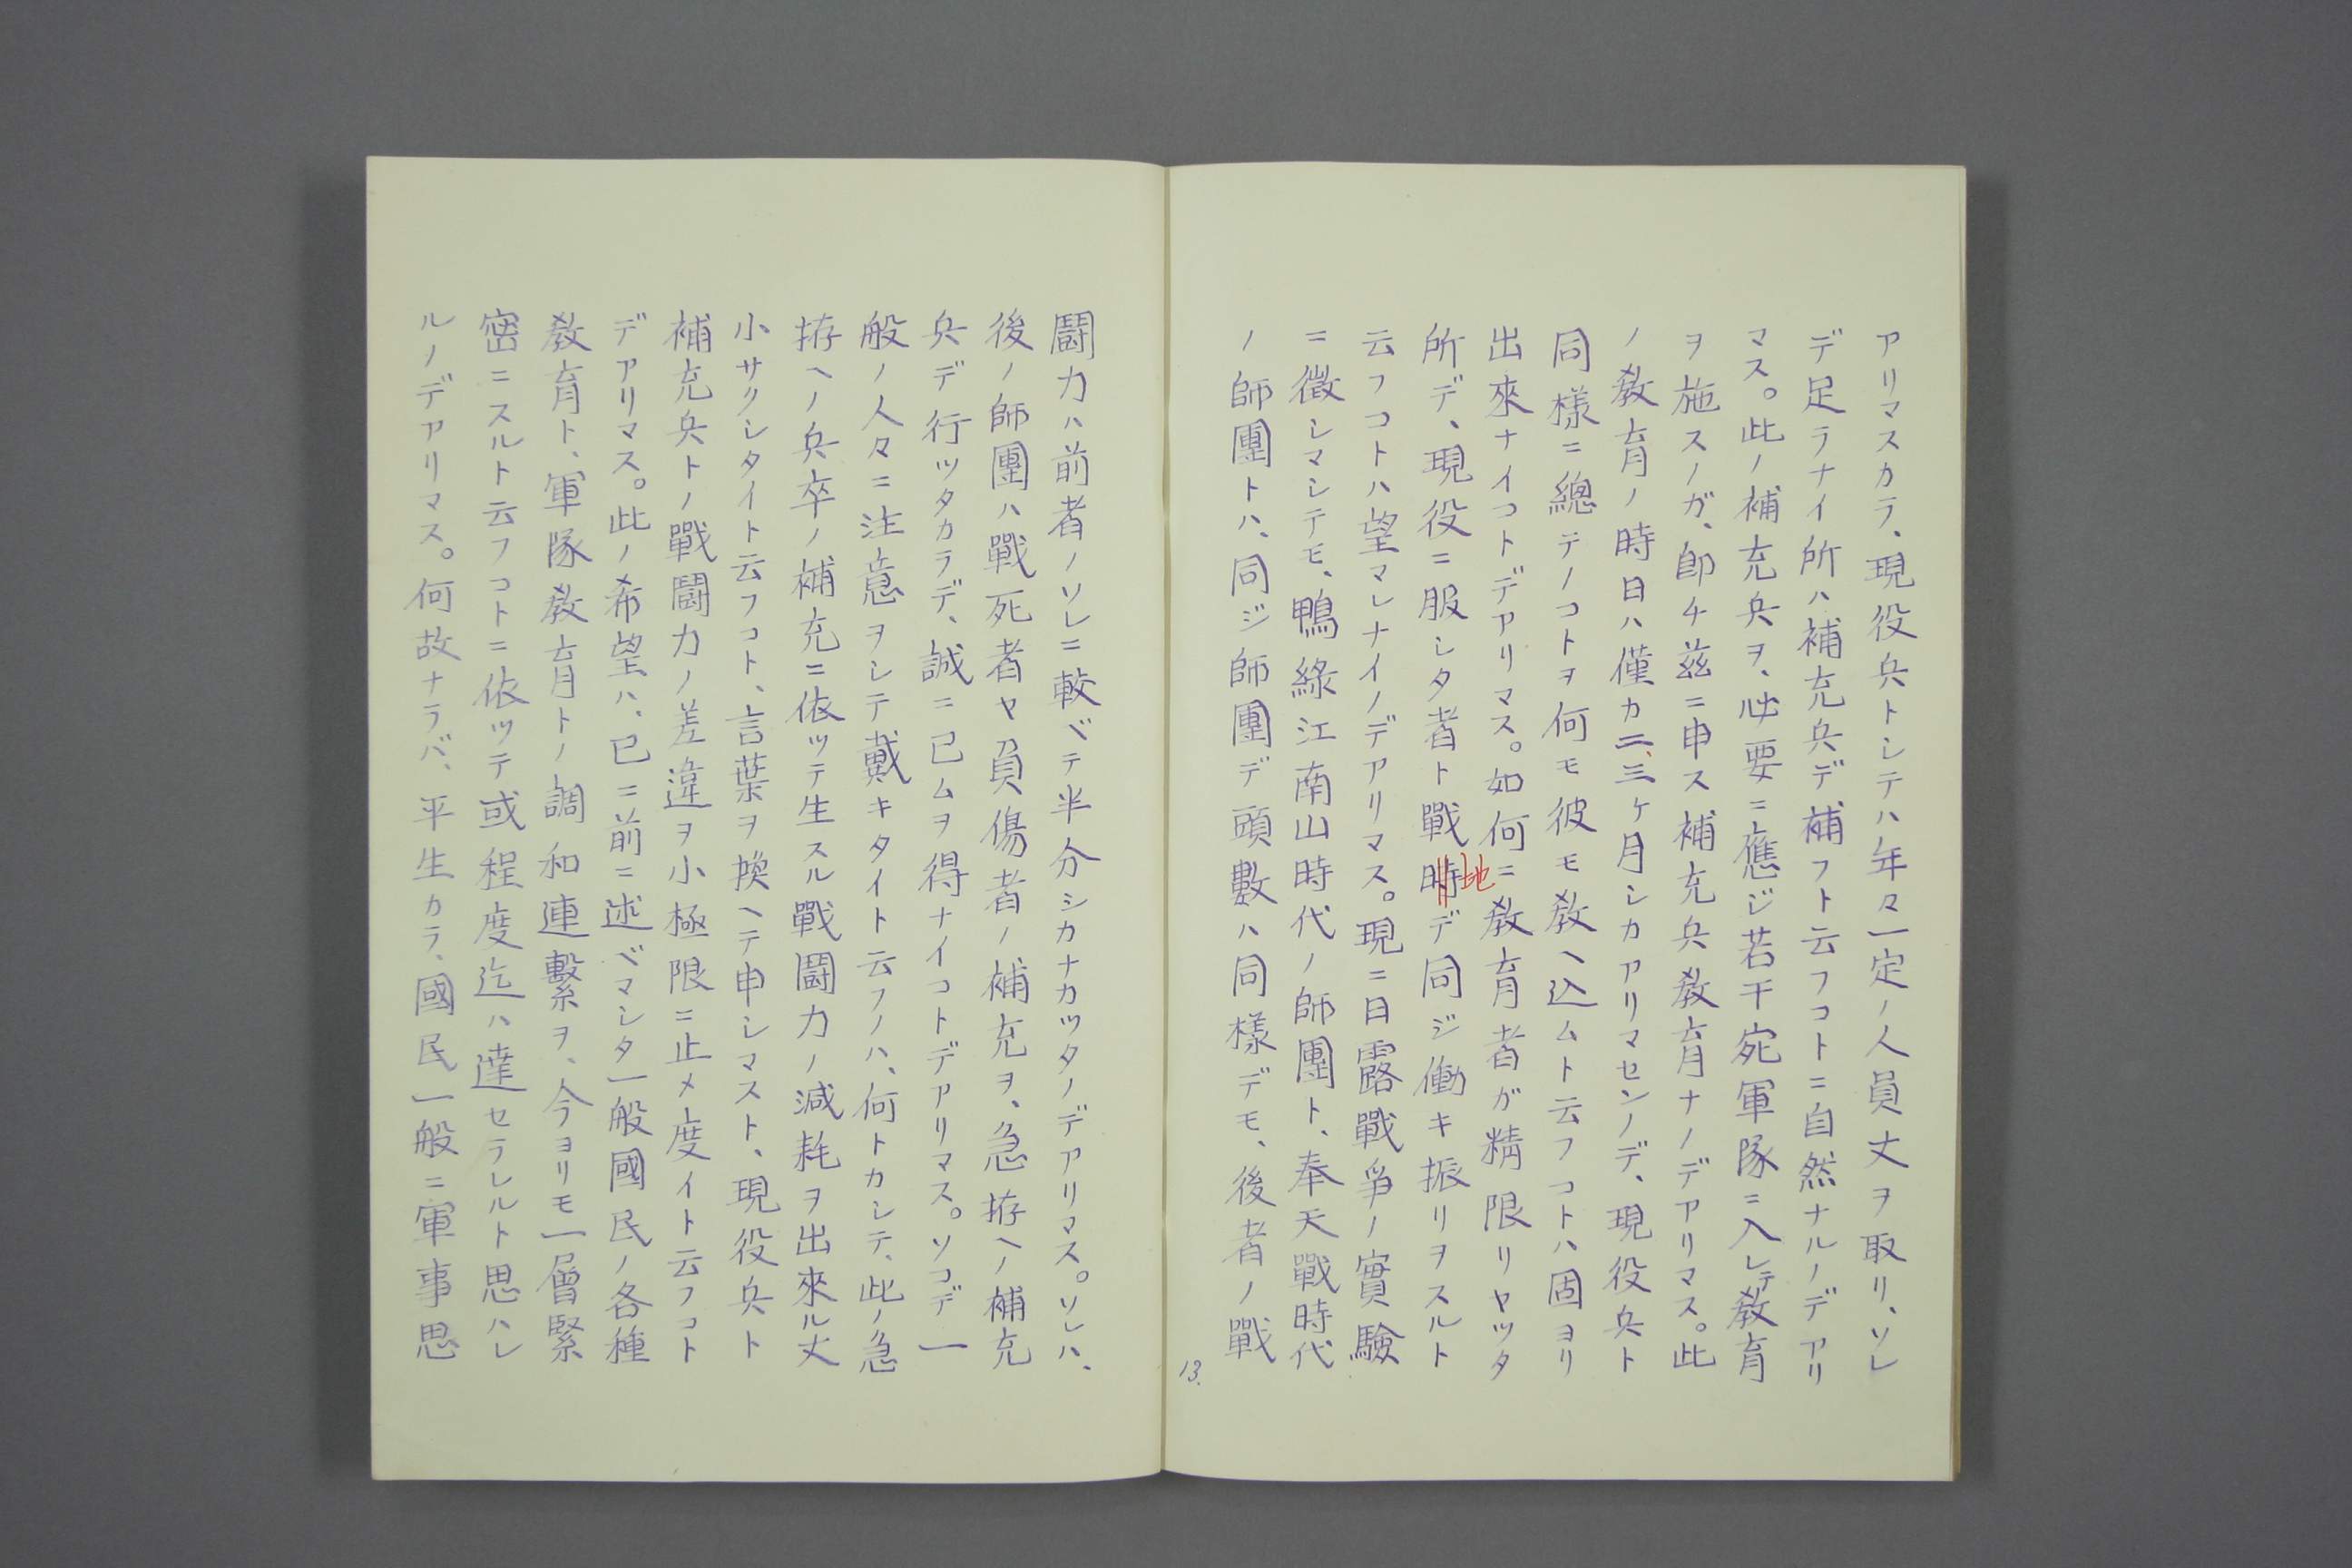 アリマスカラ、現役兵トシテハ年々一定ノ人員丈ヲ取リ、ソレ
デ足ラナイ所ハ補充兵デ補フト云フコトニ自然ナルノデアリ
マス。此ノ補充兵ヲ、必要ニ應ジ若干宛軍隊ニ入レテ教育
ヲ施スノガ、卽チ茲ニ申ス補充兵教育ナノデアリマス。此
ノ教育ノ時日ハ僅カ二、三ヶ月シカアリマセンノデ、現役兵ト
同樣ニ總テノコトヲ何モ彼モ教ヘ込ムト云フコトハ固ヨリ
出來ナイコトデアリマス。如何ニ教育者ガ精限リヤツタ
所デ、現役ニ服シタ者ト戰時地デ同ジ働キ振リヲスルト
云フコトハ望マレナイノデアリマス。現ニ日露戰爭ノ實驗
ニ徵シマシテモ、鴨綠江南山時代ノ師團ト、奉天戰時代
ノ師團トハ、同ジ師團デ頭數ハ同樣デモ、後者ノ戰
13.
鬪力ハ前者ノソレニ較ベテ半分シカナカツタノデアリマス。ソレハ、
後ノ師團ハ戰死者ヤ負傷者ノ補充ヲ、急拵ヘノ補充
兵デ行ツタカラデ、誠ニ已ムヲ得ナイコトデアリマス。ソコデ一
般ノ人々ニ注意ヲシテ戴キタイト云フノハ、何トカシテ、此ノ急
拵ヘノ兵卒ノ補充ニ依ツテ生スル戰鬪力ノ減耗ヲ出來ル丈
小サクシタイト云フコト、言葉ヲ換ヘテ申シマスト、現役兵ト
補充兵トノ戰鬪力ノ差違ヲ小極限ニ止メ度イト云フコト
デアリマス。此ノ希望ハ、已ニ前ニ述ベマシタ一般國民ノ各種
教育ト、軍隊教育トノ調和連繫ヲ、今ヨリモ一層緊
密ニスルト云フコトニ依ツテ或程度迄ハ達セラレルト思ハレ
ルノデアリマス。何故ナラバ、平生カラ、國民一般ニ軍事思